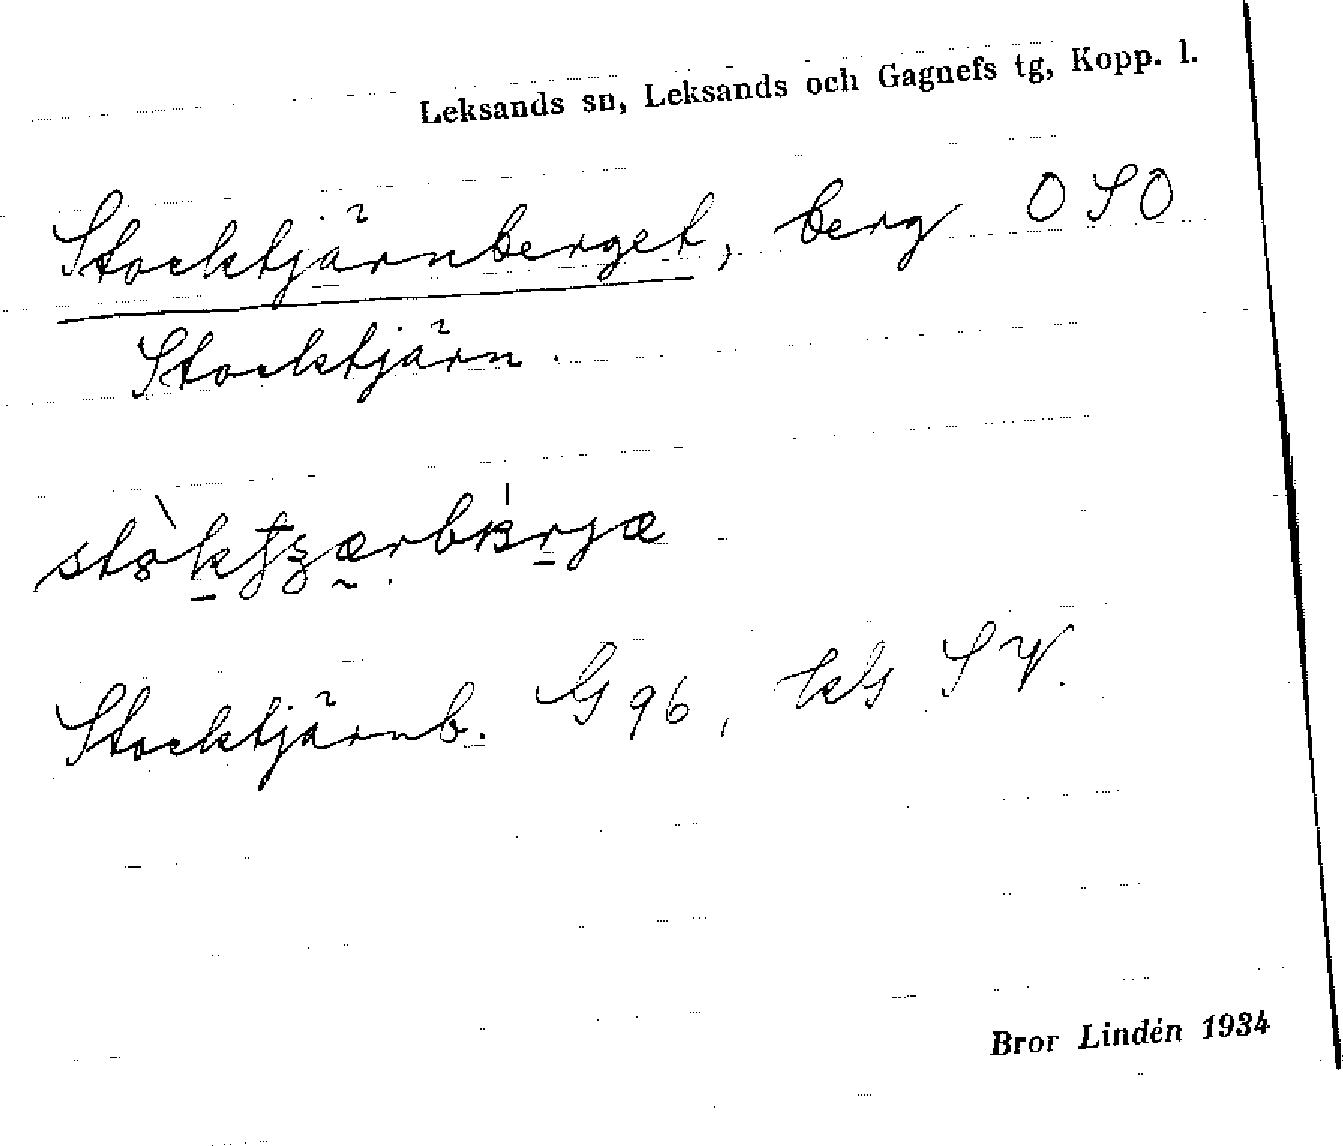 Leksands sn, Leksands och Gagnefs tg, Kopp. l.
Stocktjärnberget, berg OSO
Stocktjärn.
Stocktjärnb. G 96, kbl SV.
Bror Lindén 1934